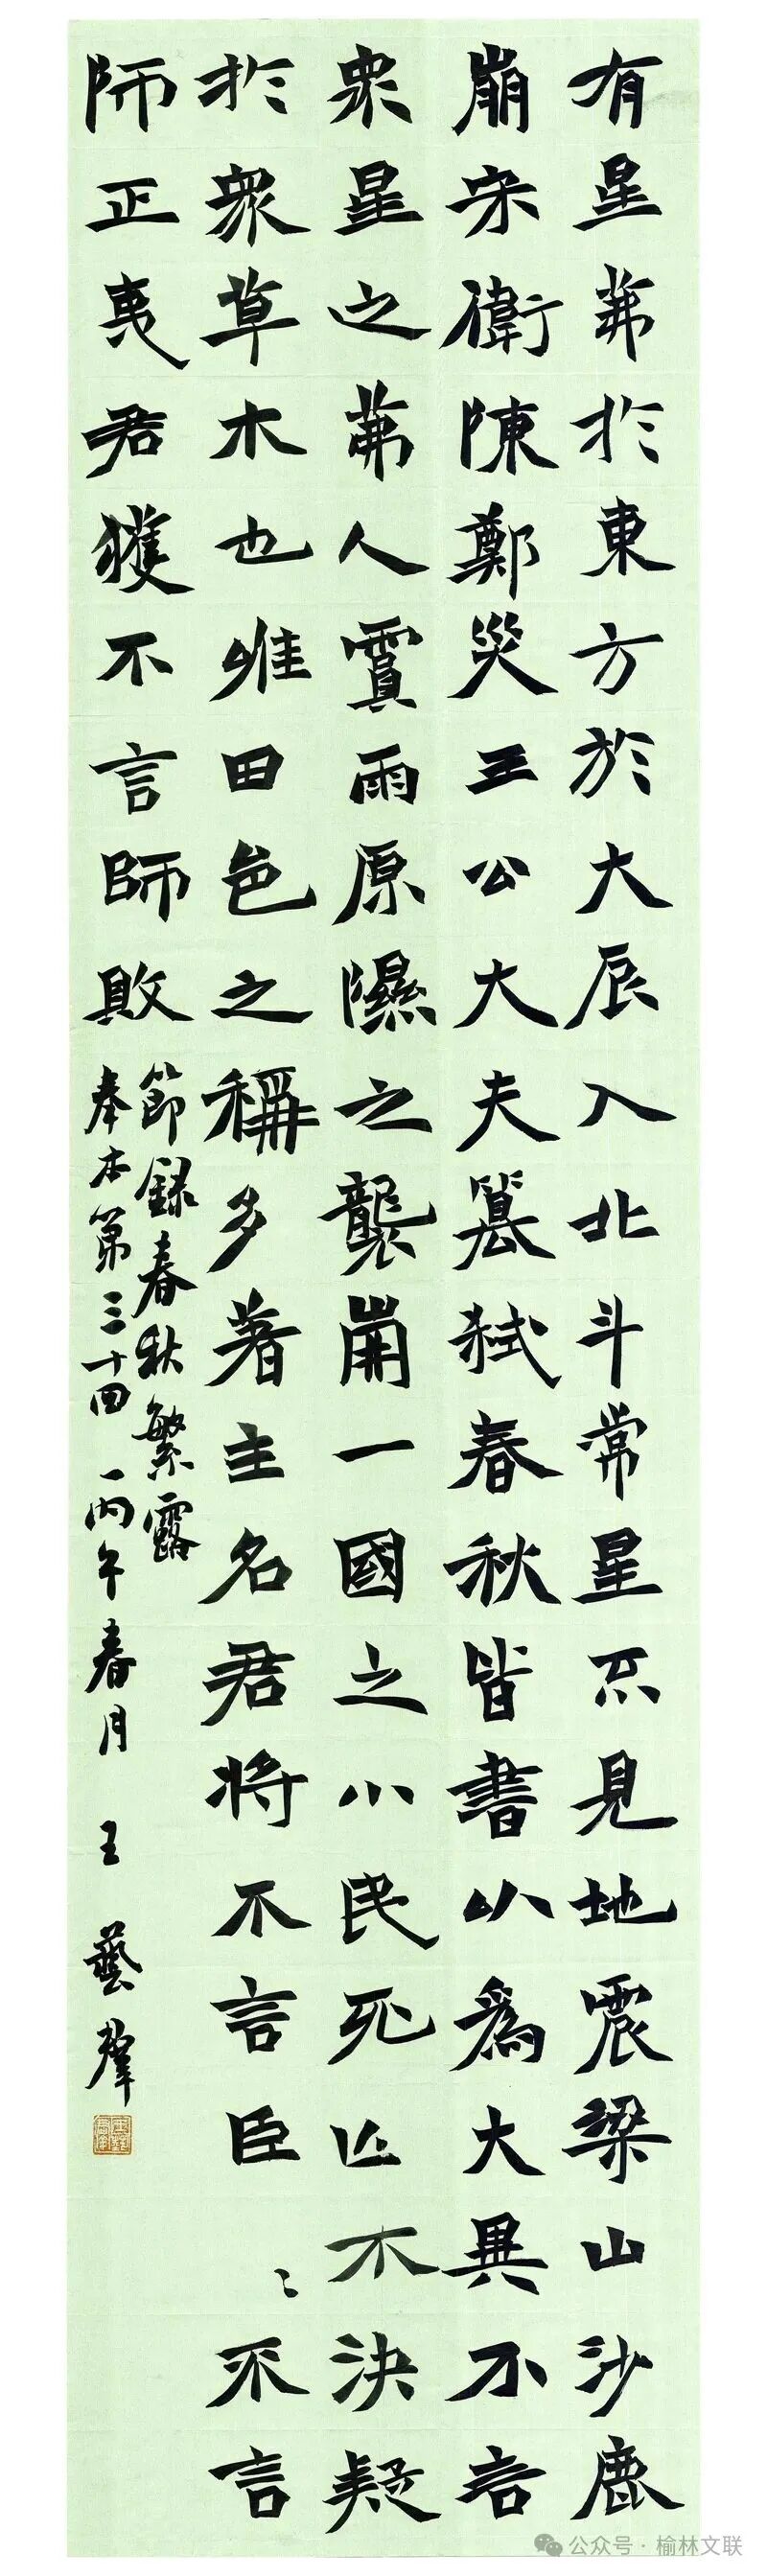 有星茀於東方於大辰入北斗常星不見地震梁山沙鹿
崩宋衛陳鄭災王公大夫篡弒春秋皆書以為大異不言
眾星之茀人霣雨原隰之襲崩一國之小民死亡不決疑
於眾草木也唯田邑之稱多著主名君將不言臣〻不言
師正夷君獲不言師敗
節錄春秋繁露
奉本第三十四 丙午春月 王藝群
公众号·榆林文联